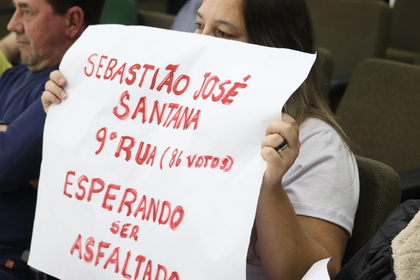 SEBASTIÃO JOSÉ
SANTANA
9ª RUA (86 VOTOS)
ESPERANDO
SER
ASFALTADA